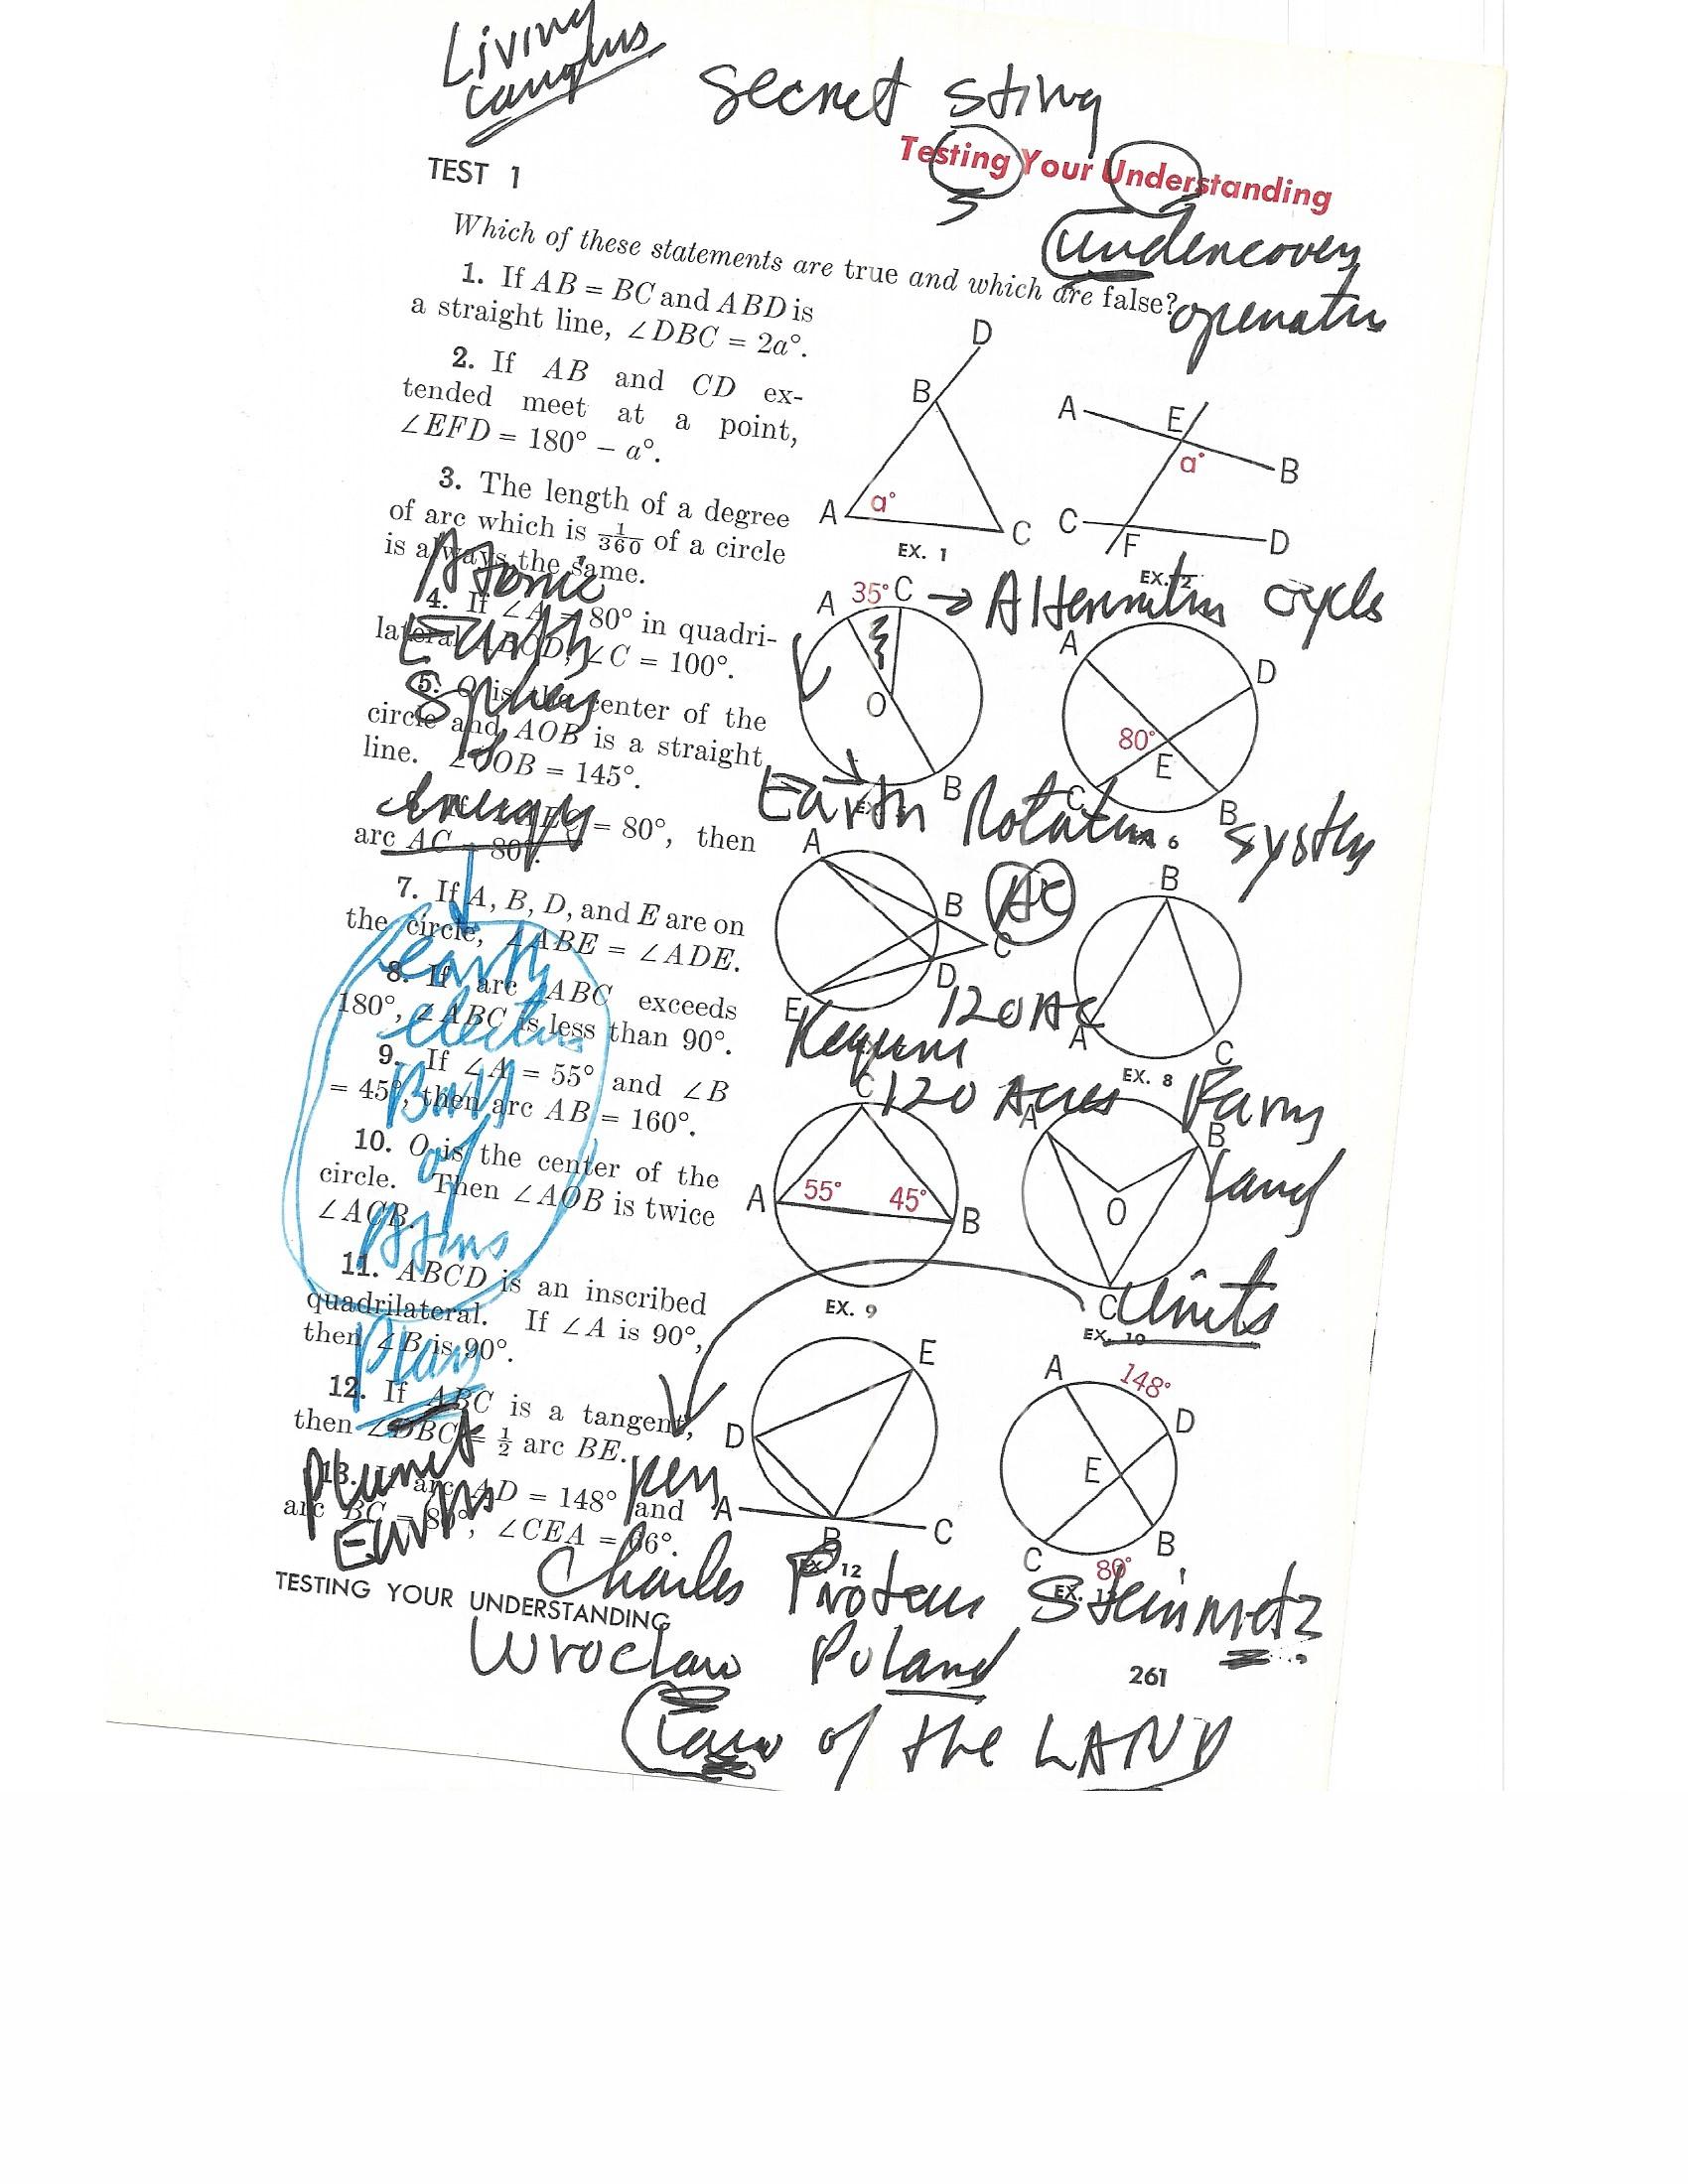 Living
secret sting
Testing Your Understanding
TEST 1
undercover
Which of these statements are true and which are false?
1. If AB = BC and ABD is
a straight line, ∠DBC = 2a°.
2. If AB and CD ex-
tended meet at a point,
∠EFD = 180° − a°.
3. The length of a degree
of arc which is 1/360 of a circle
is always the same.
Atomic
4. If ∠A = 80° in quadri-
lateral ABCD, ∠C = 100°.
Earth
5. O is the center of the
circle and AOB is a straight
line. ∠COB = 145°.
energy
= 80°, then
arc AC = 80°.
7. If A, B, D, and E are on
the circle, ∠ABE = ∠ADE.
earth
8. If arc ABC exceeds
180°, ∠ABC is less than 90°.
9. If ∠A = 55° and ∠B
= 45°, then arc AB = 160°.
Ball
10. O is the center of the
circle. Then ∠AOB is twice
∠ACB.
of
Atoms
11. ABCD is an inscribed
quadrilateral. If ∠A is 90°,
then ∠B is 90°.
Play
12. If ABC is a tangent,
then ∠DBC = ½ arc BE.
Planet
13. If arc AD = 148° and
arc BC = 80°, ∠CEA = 66°.
Earth
D
B
A a° C
EX. 1
A E
a° B
C F D
EX. 2
A 35° C → cycls
O
B
A D
80° E
C B
Earth Rotation system
6
A
B AC
C
D
E
120 AC
B
A C
EX. 8
120 Acres Farm
land
C
A 55° 45° B
EX. 9
A B
O
C Units
EX. 10
E
D
A B C
EX. 12
A 148° D
E
C 80° B
EX. 13
Charles Proteus Steinmetz
TESTING YOUR UNDERSTANDING
Wroclaw Poland
261
Law of the LAND